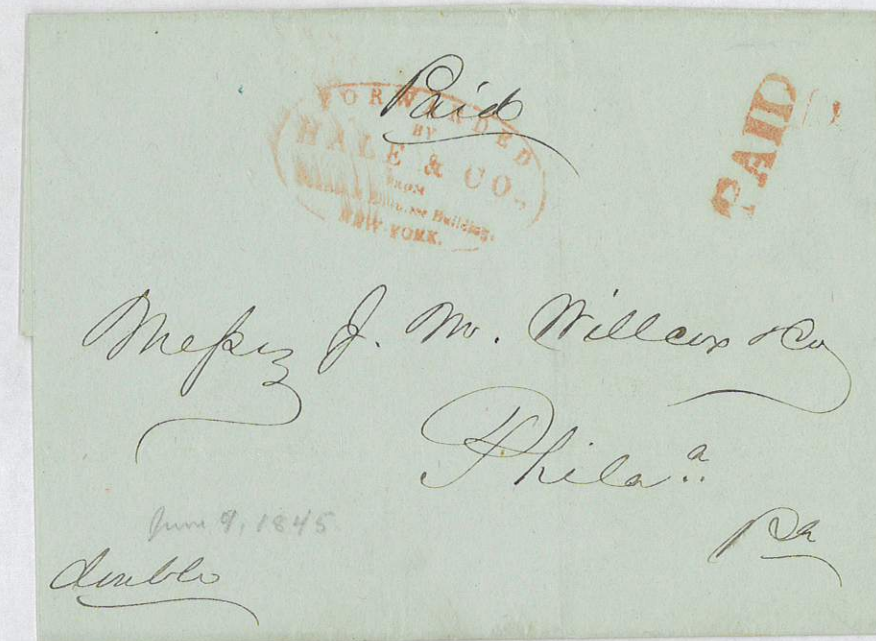 Paid
FORWARDED
BY
HALE & CO.
FROM
Building,
NEW-YORK.
PAID
Messrs J. M. Willcox & Co
Philaᵃ
Pa
June 9, 1845.
double